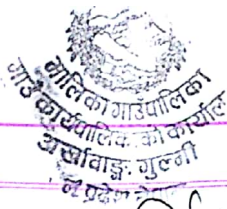 मालिका गाउँपालिका
गाउँ कार्यपालिकाको कार्यालय
अर्खावाङ्ग, गुल्मी